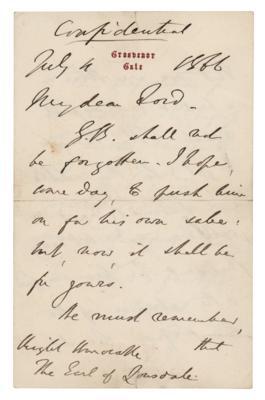 Confidential
Grosvenor
Gate
July 4 1866
My dear Lord.
G.B. shall not
be forgotten. I hope,
some day, to push him
on for his own sake:
but, now, it shall be
for yours.
He must remember,
that
Right Honorable
The Earl of Lonsdale